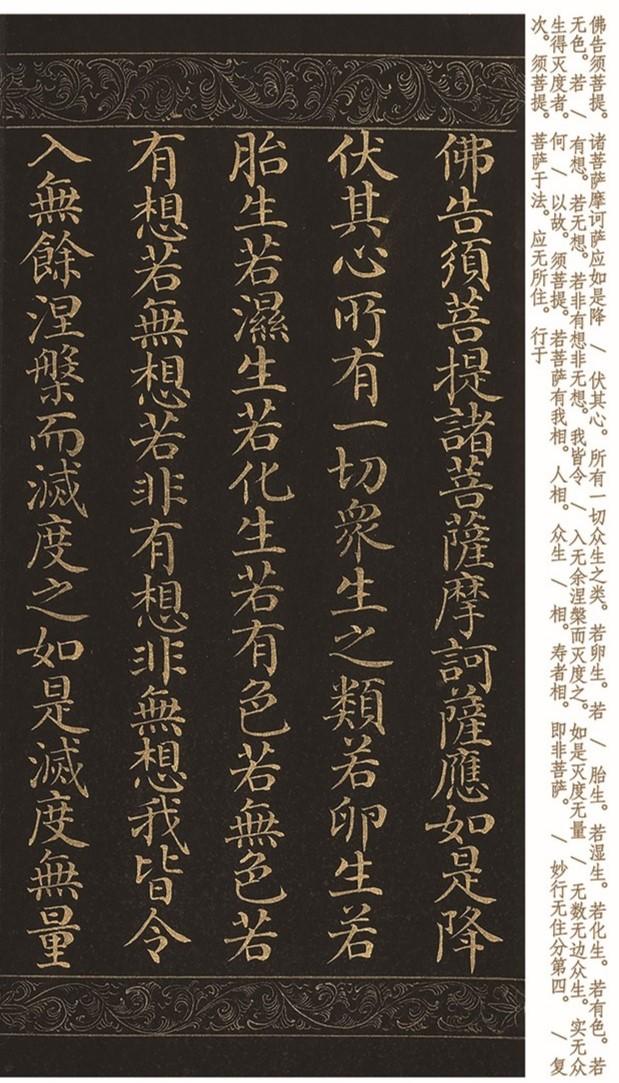 佛告须菩提。诸菩萨摩诃萨应如是降 / 伏其心。所有一切众生之类。若卵生。若 / 胎生。若湿生。若化生。若有色。若
无色。若 / 有想。若无想。若非有想非无想。我皆令 / 入无余涅槃而灭度之。如是灭度无量 / 无数无边众生。实无众
生得灭度者。何 / 以故。须菩提。若菩萨有我相。人相。众生 / 相。寿者相。即非菩萨。 / 妙行无住分第四。 / 复
次。须菩提。菩萨于法。应无所住。行于
佛告須菩提諸菩薩摩訶薩應如是降
伏其心所有一切衆生之類若卵生若
胎生若濕生若化生若有色若無色若
有想若無想若非有想非無想我皆令
入無餘涅槃而滅度之如是滅度無量